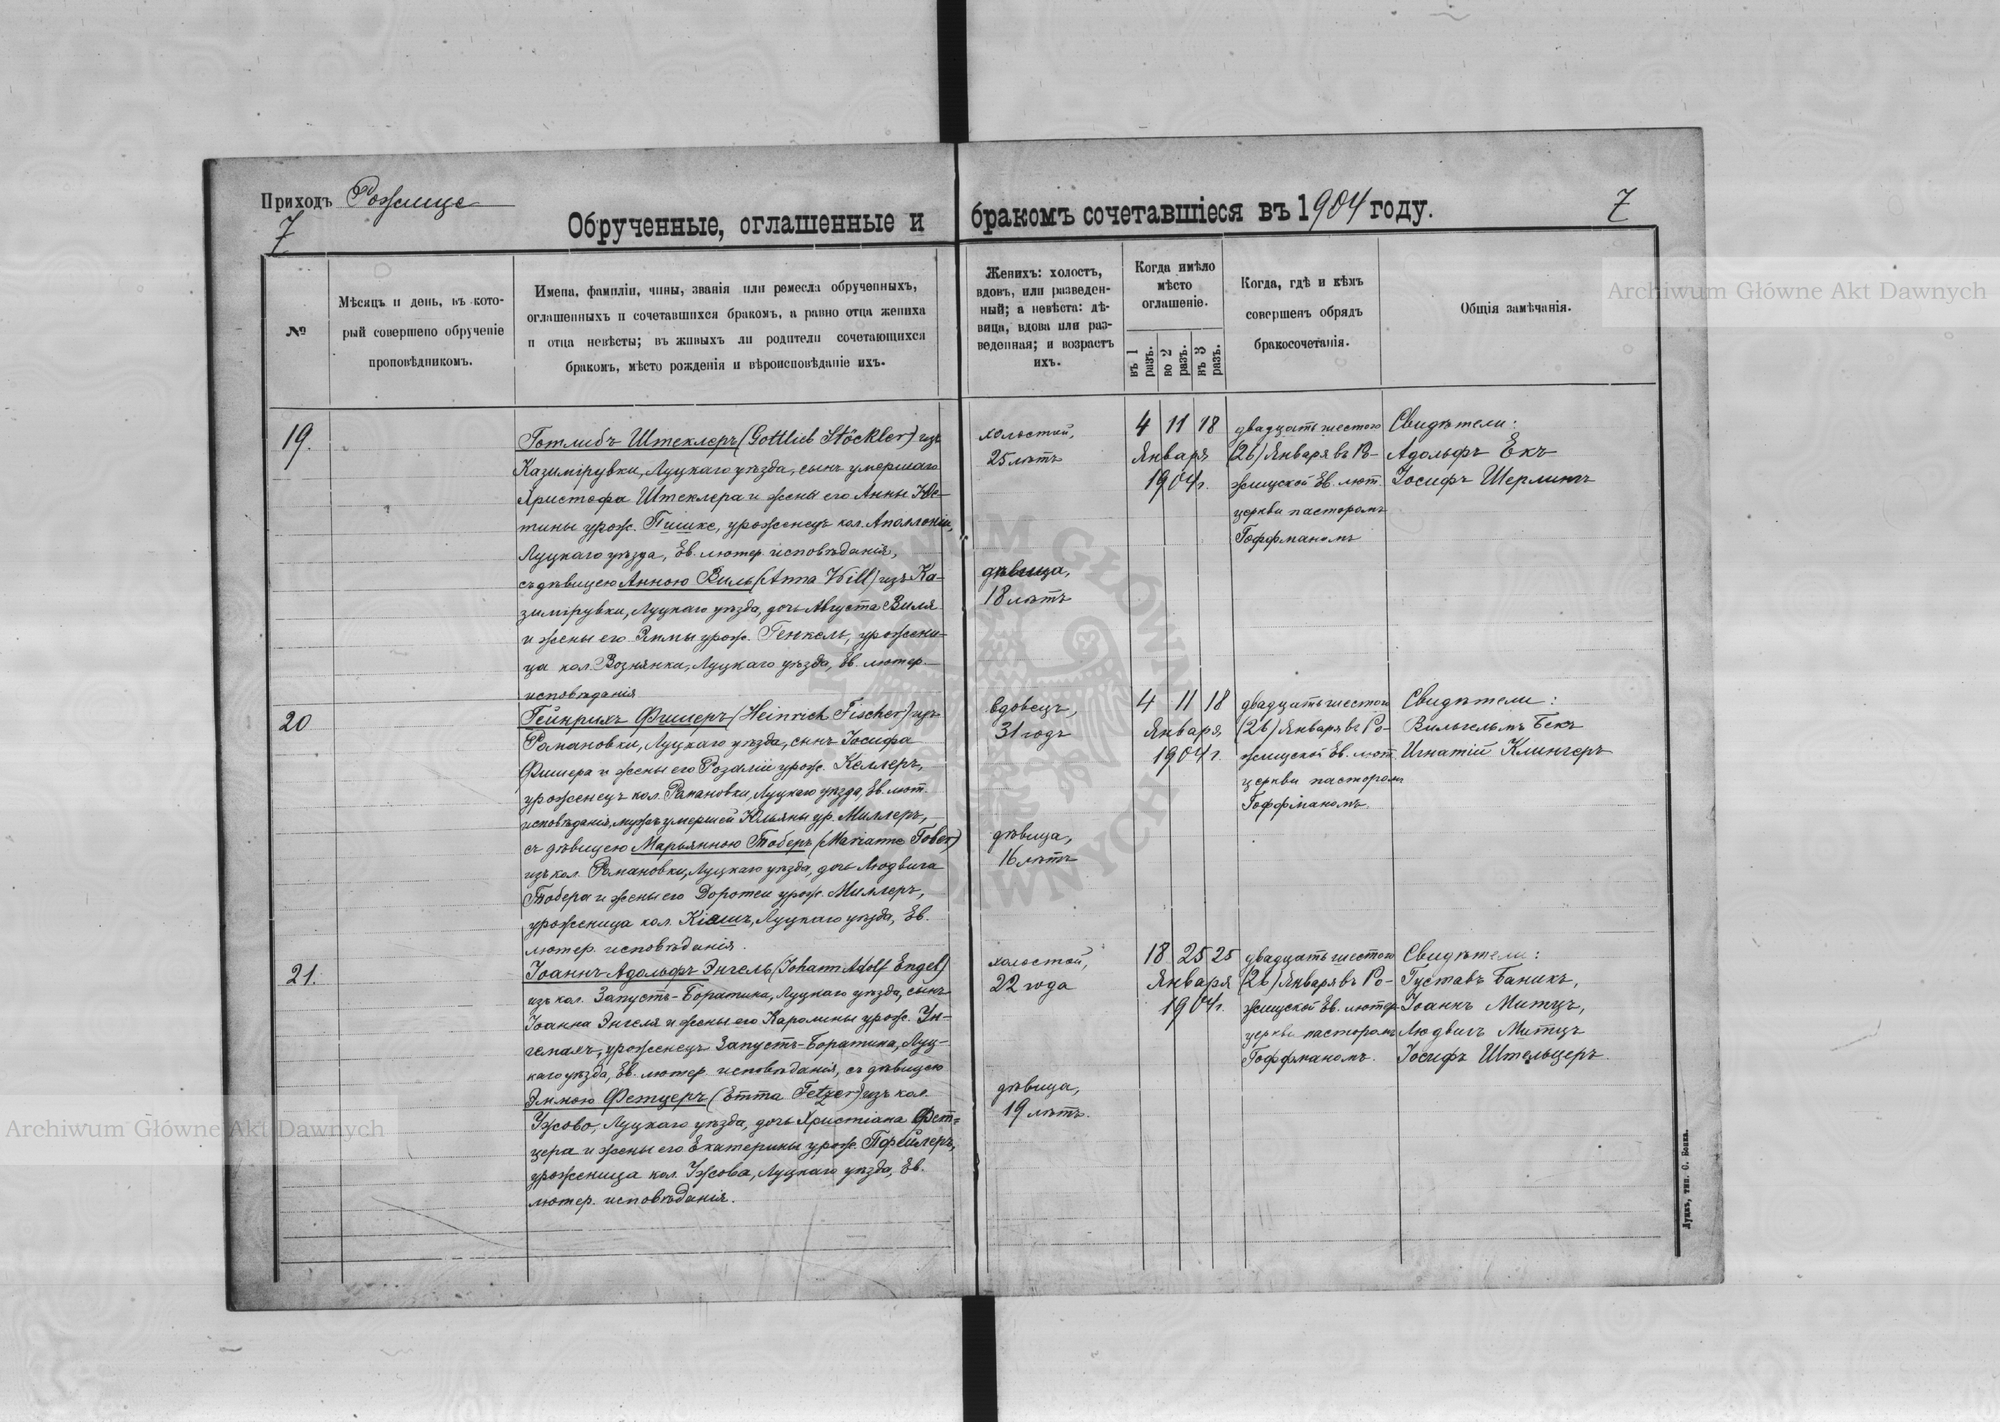 Приходъ Рожище
7
Обрученные, оглашенные и бракомъ сочетавшіеся въ 1904 году.
7
№
Мѣсяцъ и день, въ кото-
рый совершено обрученіе
проповѣдникомъ.
Имена, фамиліи, чины, званія или ремесла обрученныхъ,
оглашенныхъ и сочетавшихся бракомъ, а равно отца жениха
и отца невѣсты; въ живыхъ ли родители сочетающихся
бракомъ, мѣсто рожденія и вѣроисповѣданіе ихъ.
Женихъ: холостъ,
вдовъ, или разведен-
ный; а невѣста: дѣ-
вица, вдова или раз-
веденная; и возрастъ
ихъ.
Когда имѣло
мѣсто
оглашеніе.
въ 1 разъ.
во 2 разъ.
въ 3 разъ.
Когда, гдѣ и кѣмъ
совершенъ обрядъ
бракосочетанія.
Общія замѣчанія.
19.
Готлибъ Штеклеръ (Gottlieb Stöckler) изъ
Казимірувки, Луцкаго уѣзда, сынъ умершаго
Христофа Штеклера и жены его Анны Юс-
тины урож. Пишке, уроженецъ кол. Аполлонія,
Луцкаго уѣзда, Ев. лютер. исповѣданія,
съ дѣвицею Анною Виль (Anna Will) изъ Ка-
зимірувки, Луцкаго уѣзда, дочь Августа Виля
и жены его Эммы урож. Генкель, урожени-
ца кол. Вознянка, Луцкаго уѣзда, Ев. лютер.
исповѣданія
холостой,
25 лѣтъ
дѣвица,
18 лѣтъ
4 11 18
Января
1904 г.
двадцать шестого
(26) Января въ Ро-
жищской Ев. лют.
церкви пасторомъ
Гоффманомъ
Свидѣтели:
Адольфъ Екъ
Іосифъ Шерлингъ
20
Гейнрихъ Фишеръ (Heinrich Fischer) изъ
Романовки, Луцкаго уѣзда, сынъ Іосифа
Фишера и жены его Розаліи урож. Келлеръ,
уроженецъ кол. Романовки, Луцкаго уѣзда, Ев. лют.
исповѣданія, мужъ умершей Юльяны ур. Миллеръ,
съ дѣвицею Марьянною Тоберъ (Marianne Tober)
изъ кол. Романовки, Луцкаго уѣзда, дочь Людвига
Тобера и жены его Доротеи урож. Миллеръ,
уроженица кол. Кіашъ, Луцкаго уѣзда, Ев.
лютер. исповѣданія.
вдовецъ,
31 годъ
дѣвица,
16 лѣтъ
4 11 18
Января
1904 г.
двадцать шестого
(26) Января въ Ро-
жищской Ев. лют.
церкви пасторомъ
Гоффманомъ.
Свидѣтели:
Вильгельмъ Бекъ
Игнатій Клингеръ
21.
Іоаннъ Адольфъ Энгель (Johann Adolf Engel)
изъ кол. Запустъ-Боратина, Луцкаго уѣзда, сынъ
Іоанна Энгеля и жены его Каролины урож. Ун-
гемахъ, уроженецъ Запустъ-Боратина, Луц-
каго уѣзда, Ев. лютер. исповѣданія, съ дѣвицею
Эммою Фетцеръ (Emma Fetzer) изъ кол.
Ужово, Луцкаго уѣзда, дочь Христіана Фет-
цера и жены его Екатерины урож. Пфейлеръ,
уроженица кол. Ужова, Луцкаго уѣзда, Ев.
лютер. исповѣданія.
холостой,
22 года
дѣвица,
19 лѣтъ.
18 25 25
Января
1904 г.
двадцать шестого
(26) Января въ Ро-
жищской Ев. лютер.
церкви пасторомъ
Гоффманомъ.
Свидѣтели:
Густавъ Баникъ,
Іоаннъ Митцъ,
Людвигъ Митцъ
Іосифъ Штельцеръ.
Луцкъ, тип. С. Бонка.
Archiwum Główne Akt Dawnych
Archiwum Główne Akt Dawnych